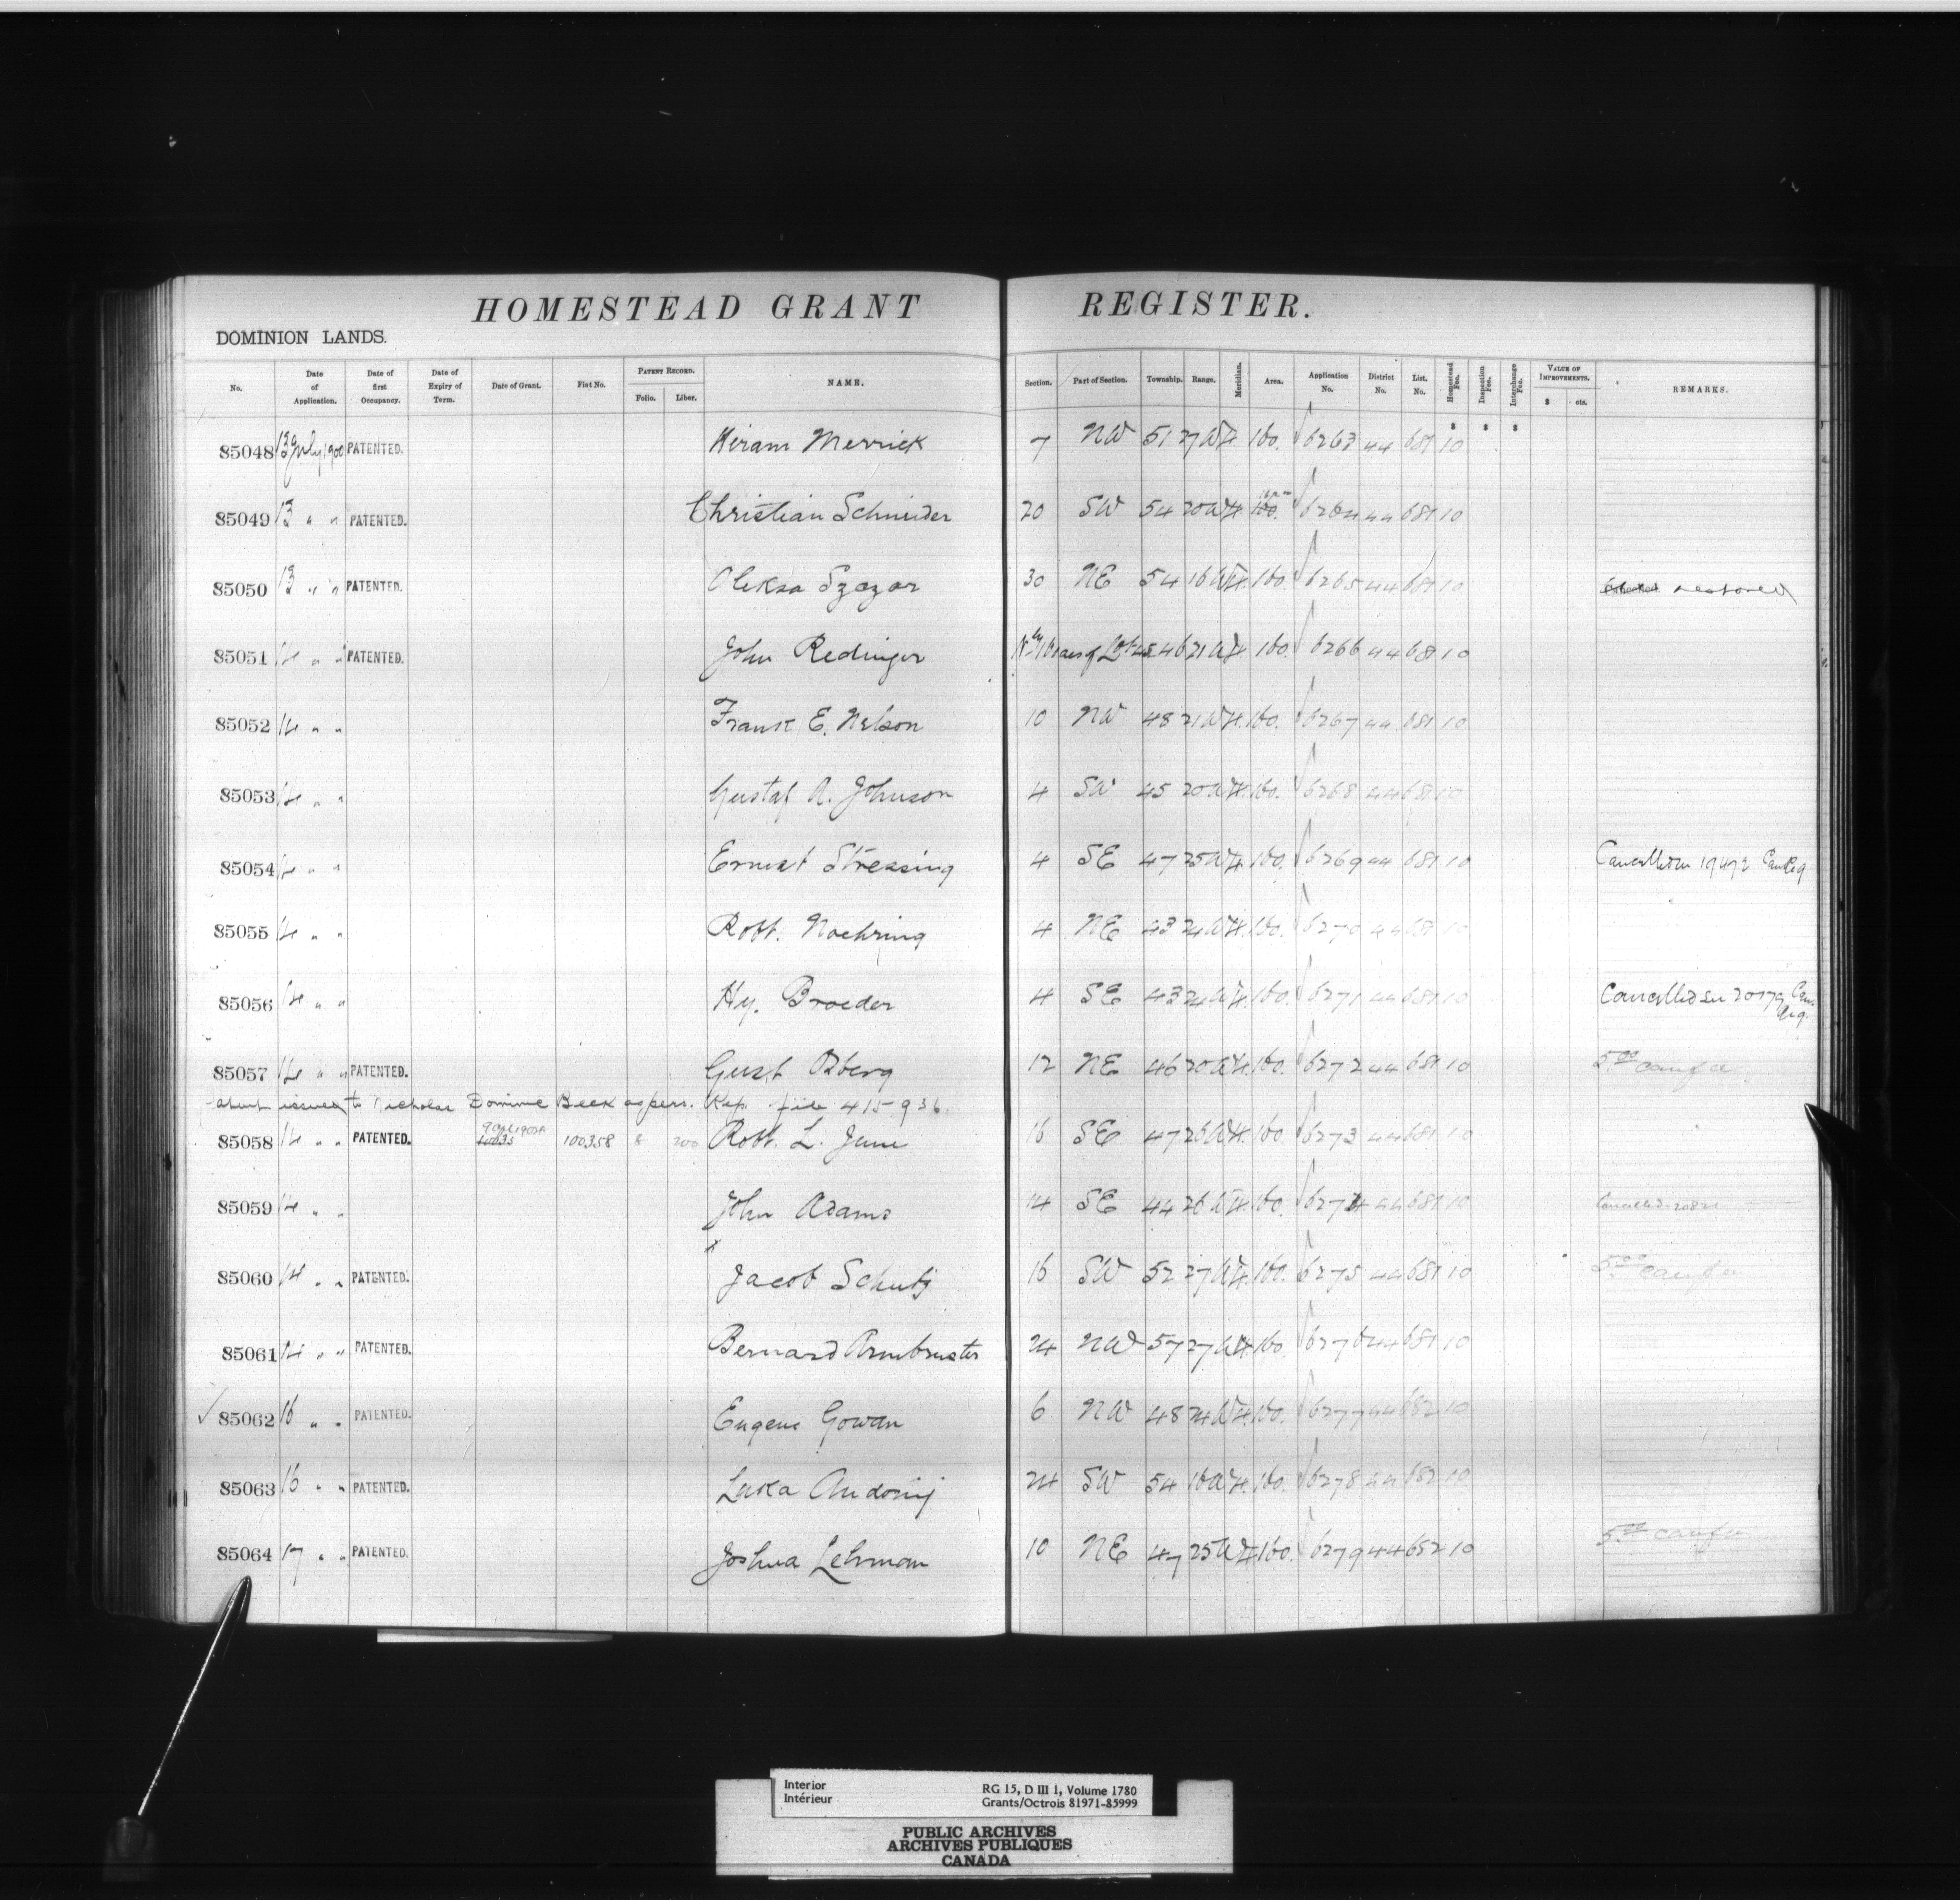 HOMESTEAD GRANT REGISTER.
DOMINION LANDS.
No. Date of Application. Date of first Occupancy. Date of Expiry of Term. Date of Grant. Fiat No. PATENT RECORD. Folio. Liber. NAME. Section. Part of Section. Township. Range. Meridian. Area. Application No. District No. List. No. Homestead Fee. Inspection Fee. Interchange Fee. VALUE OF IMPROVEMENTS. $ cts. REMARKS.
$ $ $
85048 13 July 1900 PATENTED. Hiram Merrick 7 NW 51 27 W4 160. 6263 44 681 10
85049 13 " " PATENTED. Christian Schneider 20 SW 54 20 W4. 160. 6264 44 681 10
85050 13 " " PATENTED. Oleksa Szazar 30 NE 54 16 W4. 160. 6265 44 681 10 Cancelled restored
85051 14 " " PATENTED. John Redinger of Lot 45 46 21 W4 160. 6266 44 681 10
85052 14 " " Frank E. Nelson 10 NW 48 21 W4. 160. 6267 44 681 10
85053 14 " " Gustaf A. Johnson 4 SW 45 20 W4. 160. 6268 44 681 10
85054 14 " " Ernest Stressing 4 SE 47 25 W4 160. 6269 44 681 10 Cancelled see 19472 Can Reg
85055 14 " " Robt. Noehring 4 NE 43 24 W4. 160. 6270 44 681 10
85056 14 " " Hy. Broeder 4 SE 43 24 W4. 160. 6271 44 681 10 Cancelled see 20179 Can. Reg.
85057 14 " " PATENTED. Gust Osberg 12 NE 46 20 W4. 160. 6272 44 681 10 5.00
atent issued to Nicholas Dominic Beck as pers. Rep. file 415936.
85058 14 " " PATENTED. 100358 8 200 Robt. L. June 16 SE 47 26 W4. 160. 6273 44 681 10
85059 14 " " John Adams 14 SE 44 26 W4. 160. 6274 44 681 10 Cancelled
x
85060 14 " " PATENTED. Jacob Schutz 16 SW 52 27 W4. 160. 6275 44 681 10 5.00
85061 14 " " PATENTED. Bernard Armbruster 24 NW 57 27 W4 160 6276 44 681 10
✓ 85062 16 " " PATENTED. Eugene Gowan 6 NW 48 24 W4. 160. 6277 44 682 10
85063 16 " " PATENTED. Luka Andorij 24 SW 54 16 W4. 160. 6278 44 682 10
85064 17 " " PATENTED. Joshua Lehman 10 NE 47 25 W4 160. 6279 44 652 10 5.00
Interior
Intérieur
RG 15, D III 1, Volume 1780
Grants/Octrois 81971-85999
PUBLIC ARCHIVES
ARCHIVES PUBLIQUES
CANADA